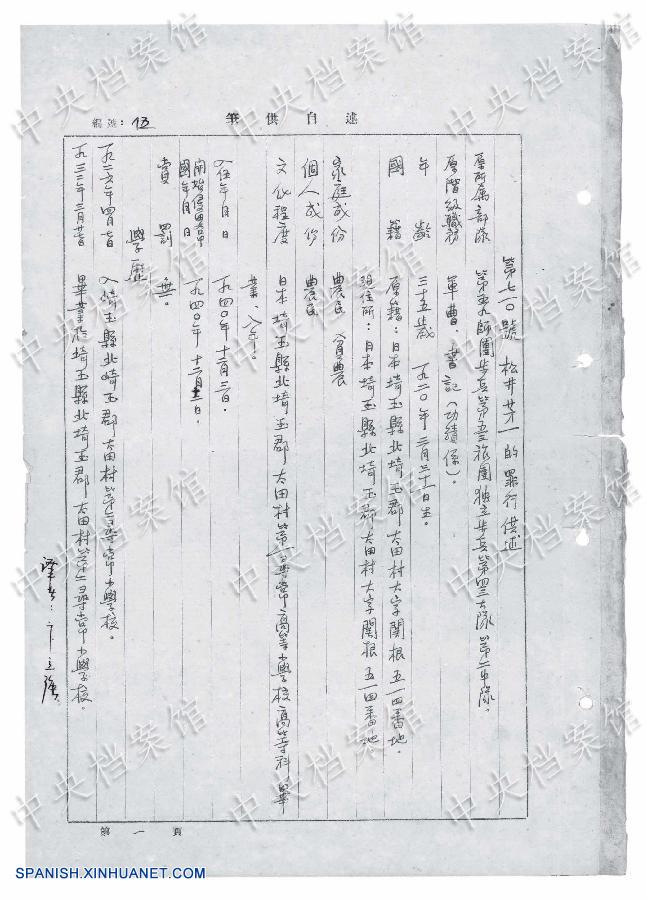 編號：
筆供自述
第七一〇號 松井芳一的罪行供述
原所屬部隊 第五九師團步兵第五三旅團獨立步兵第四三大隊第二中隊。
原階級職務 軍曹、書記（功績係）。
年齡 三十五歲 一九二〇年三月三十一日生。
國籍 原籍：日本埼玉縣北埼玉郡太田村大字關根五一四番地。
現住所：日本埼玉縣北埼玉郡太田村大字關根五一四番地
家庭成份 農民 貧農
個人成份 農民
文化程度 日本埼玉縣北埼玉郡太田村第二尋常高等小學校高等科畢
業、八年。
入伍年月日 一九四〇年十二月三日。
開始侵略中國年月日 一九四〇年十二月
賞罰 無。
學歷
一九二六年四月 入埼玉縣北埼玉郡太田村第二尋常小學校。
一九三二年三月 畢業於埼玉縣北埼玉郡太田村第二尋常小學校。
譯者：卞立強
第一頁
中央档案馆
SPANISH.XINHUANET.COM